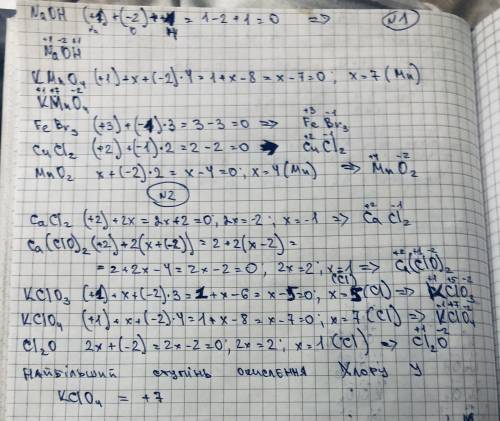 NaOH (+1)+(-2)+(+1) = 1-2+1=0 => №1
+1 -2 +1
NaOH
KMnO₄ (+1)+x+(-2)·4=1+x-8=x-7=0; x=7(Mn)
+1 +7 -2
KMnO₄
+3 -1
FeBr₃ (+3)+(-1)·3=3-3=0 => FeBr₃
+2 -1
CuCl₂ (+2)+(-1)·2=2-2=0 => CuCl₂
+4 -2
MnO₂ x+(-2)·2=x-4=0; x=4(Mn) => MnO₂
№2
+2 -1
CaCl₂ (+2)+2x=2x+2=0; 2x=-2; x=-1 => CaCl₂
Ca(ClO)₂ (+2)+2(x+(-2))=2+2(x-2)=
+2 +1 -2
=2+2x-4=2x-2=0, 2x=2; x=1 (Cl) => Ca(ClO)₂
+1 +5 -2
KClO₃ (+1)+x+(-2)·3=1+x-6=x-5=0; x=5(Cl) => KClO₃
+1 +7 -2
KClO₄ (+1)+x+(-2)·4=1+x-8=x-7=0; x=7(Cl) => KClO₄
+1 -2
Cl₂O 2x+(-2)=2x-2=0; 2x=2; x=1 (Cl) => Cl₂O
Найбільший ступінь окислення Хлору у
KClO₄ = +7